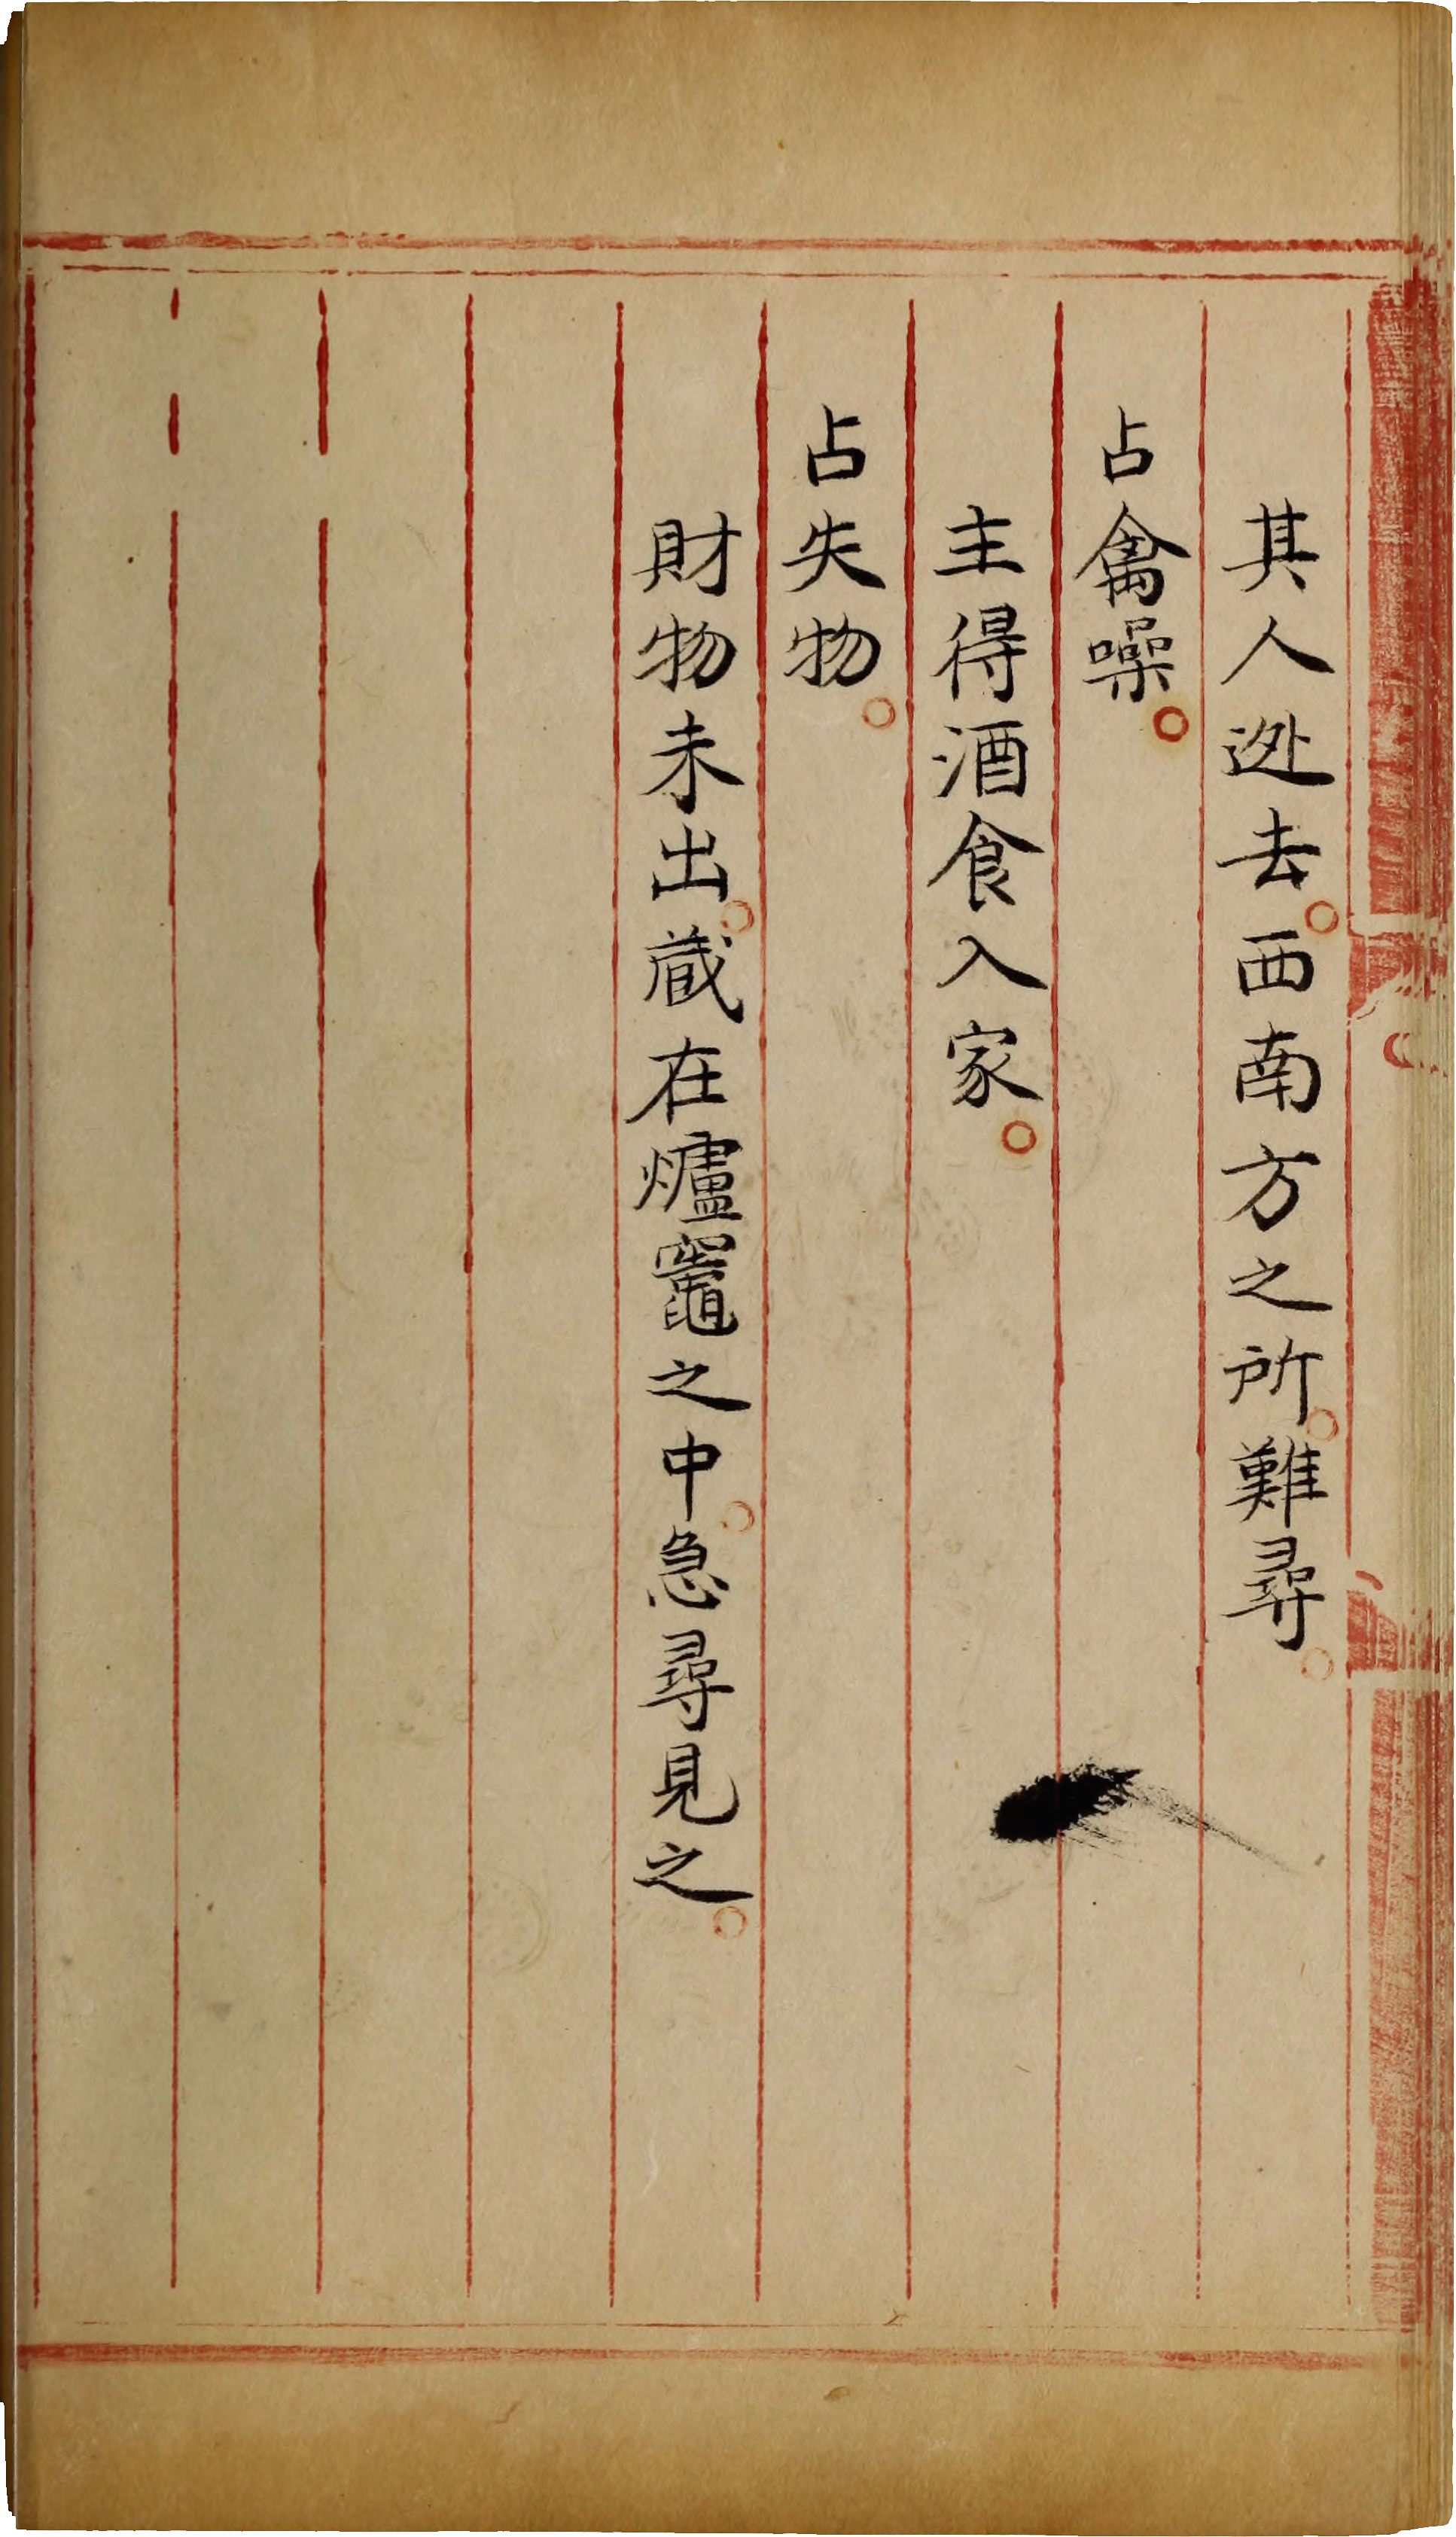 其人逃去。西南方之所。難尋。
占禽噪。
主得酒食入家。
占失物。
財物未出。蔵在爐竈之中。急尋見之。